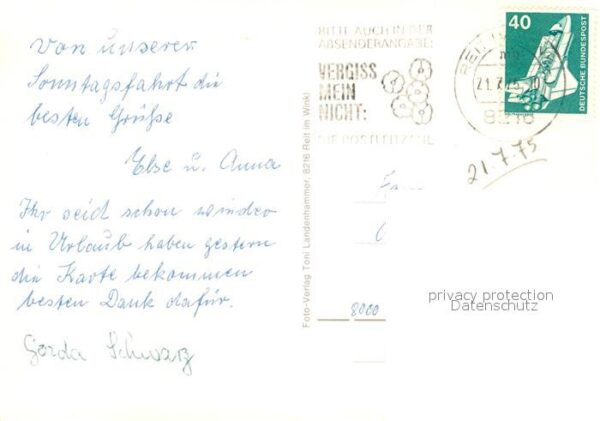 Von unserer
Sonntagsfahrt die
besten Grüße
Else u. Anna
Ihr seid schon wieder
in Urlaub haben gestern
die Karte bekommen
besten Dank dafür.
Gerda Schwarz
Foto-Verlag Toni Landenhammer, 8216 Reit im Winkl
BITTE AUCH IN DER
ABSENDERANGABE:
VERGISS
MEIN
NICHT:
DIE POSTLEITZAHL
REIT IM
21.7.75
8216
40
DEUTSCHE BUNDESPOST
21.7.75
8000
privacy protection
Datenschutz